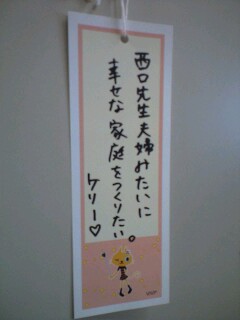 西口先生夫婦みたいに
幸せな家庭をつくりたい。
ケリー♡